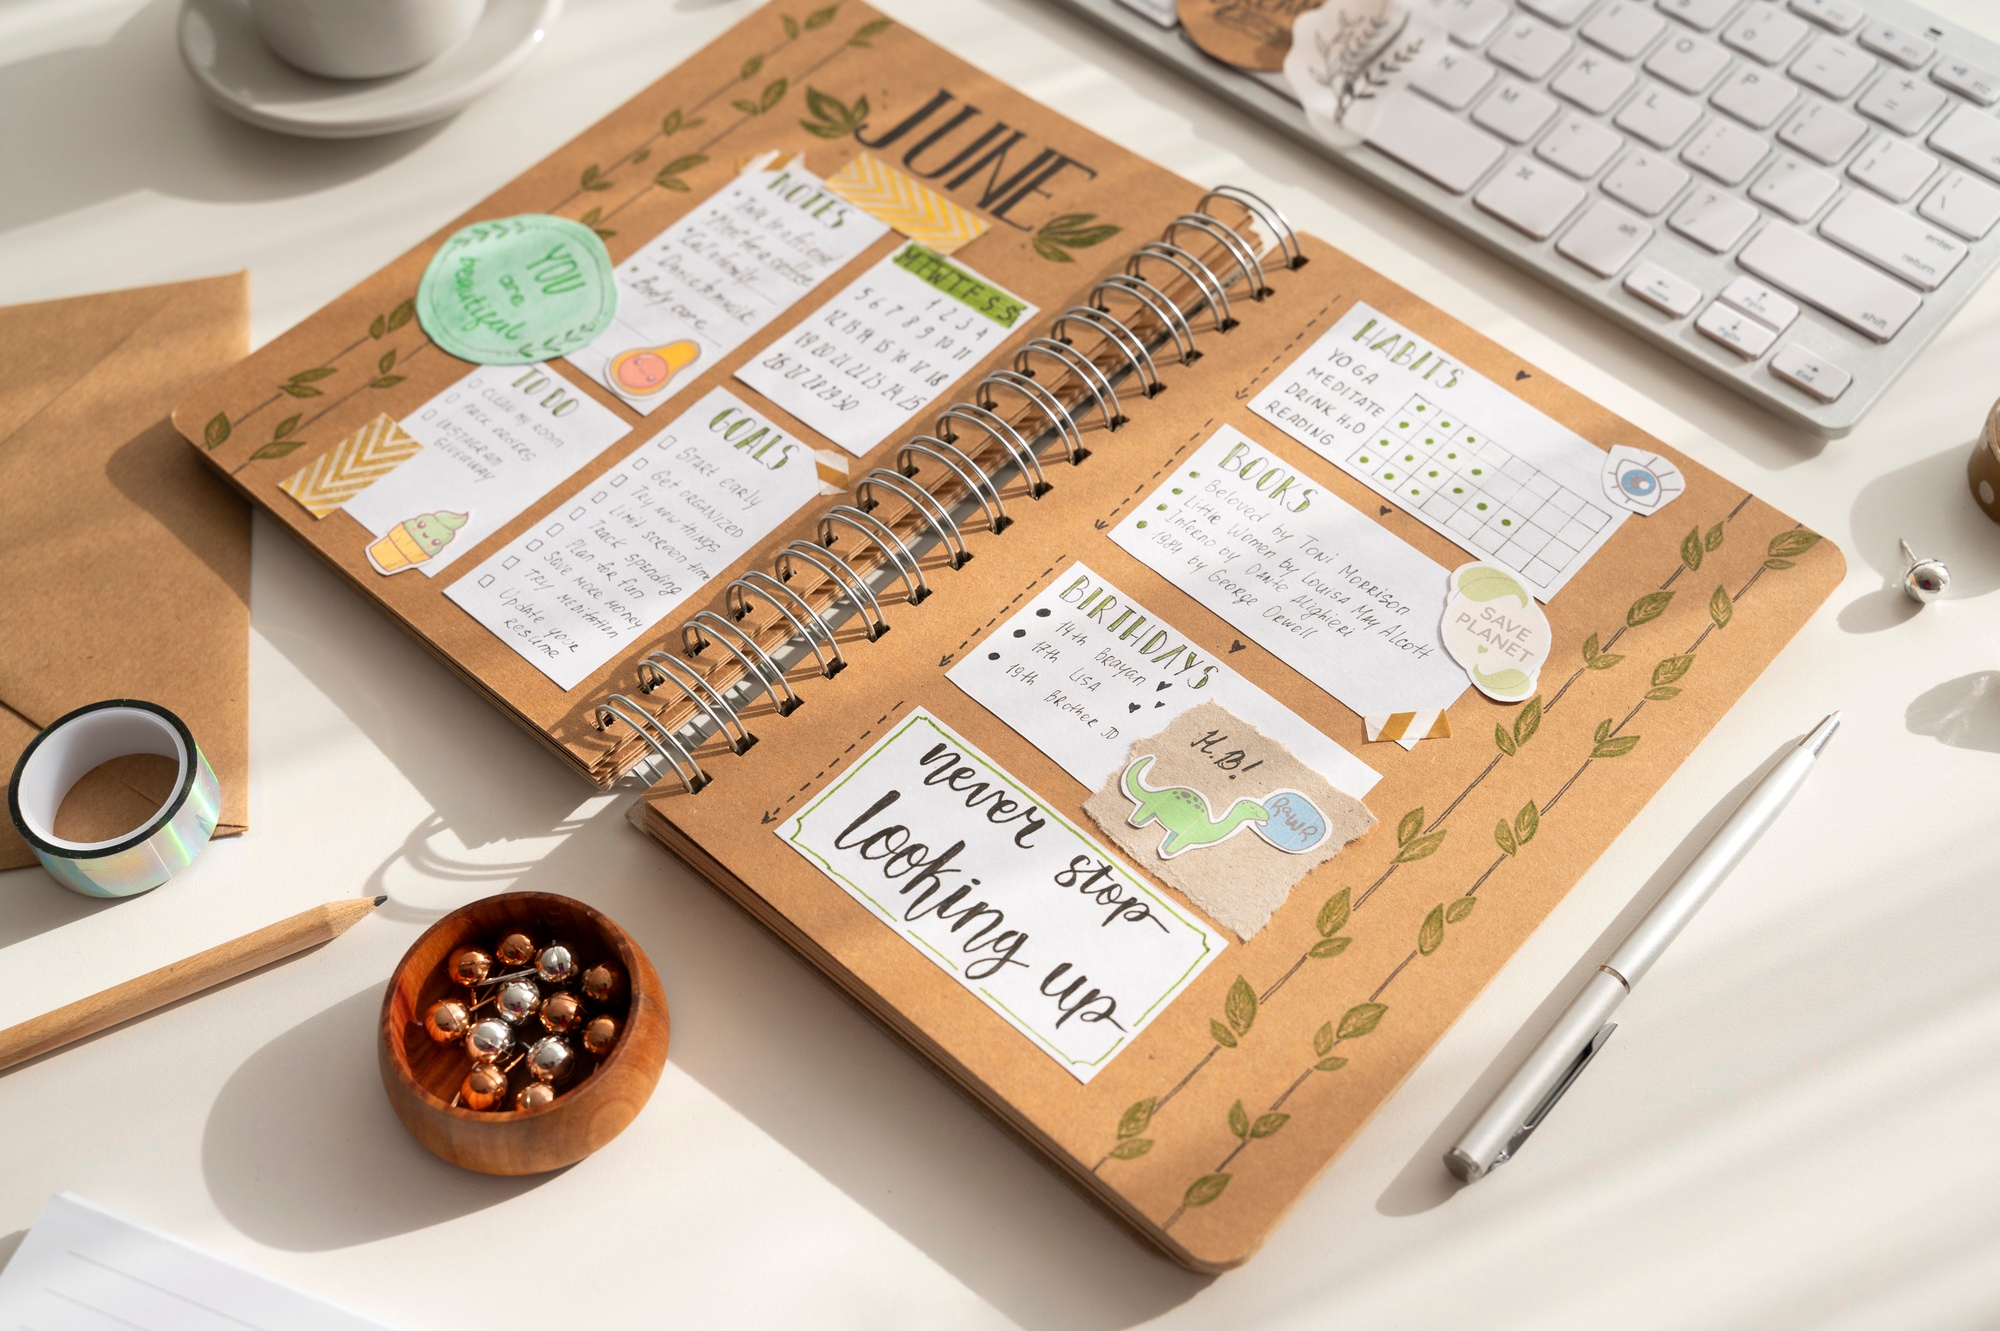 JUNE
NOTES
Talk to a friend
Meet for a coffee
Call family
Dance to music
Body care
YOU
are
beautiful
M T W T F S S
1 2 3 4
5 6 7 8 9 10 11
12 13 14 15 16 17 18
19 20 21 22 23 24 25
26 27 28 29 30
TO DO
CLEAN MY ROOM
PACK ORDERS
INSTAGRAM
GIVEAWAY
GOALS
START EARLY
GET ORGANIZED
TRY NEW THINGS
LIMIT SCREEN TIME
TRACK SPENDING
Plan for fun
SAVE MORE MONEY
TRY MEDITATION
Update your
resume
HABITS
YOGA
MEDITATE
DRINK H2O
READING
BOOKS
Beloved by Toni Morrison
Little Women by Louisa May Alcott
Inferno by Dante Alighieri
1984 by George Orwell
SAVE
PLANET
BIRTHDAYS
14th Brayan
17th LISA
19th Brother JD
H.B!
RAWR
never stop
looking up
H
J
K
L
N
M
O
P
alt
enter
return
shift
PgUp
PgDn
End